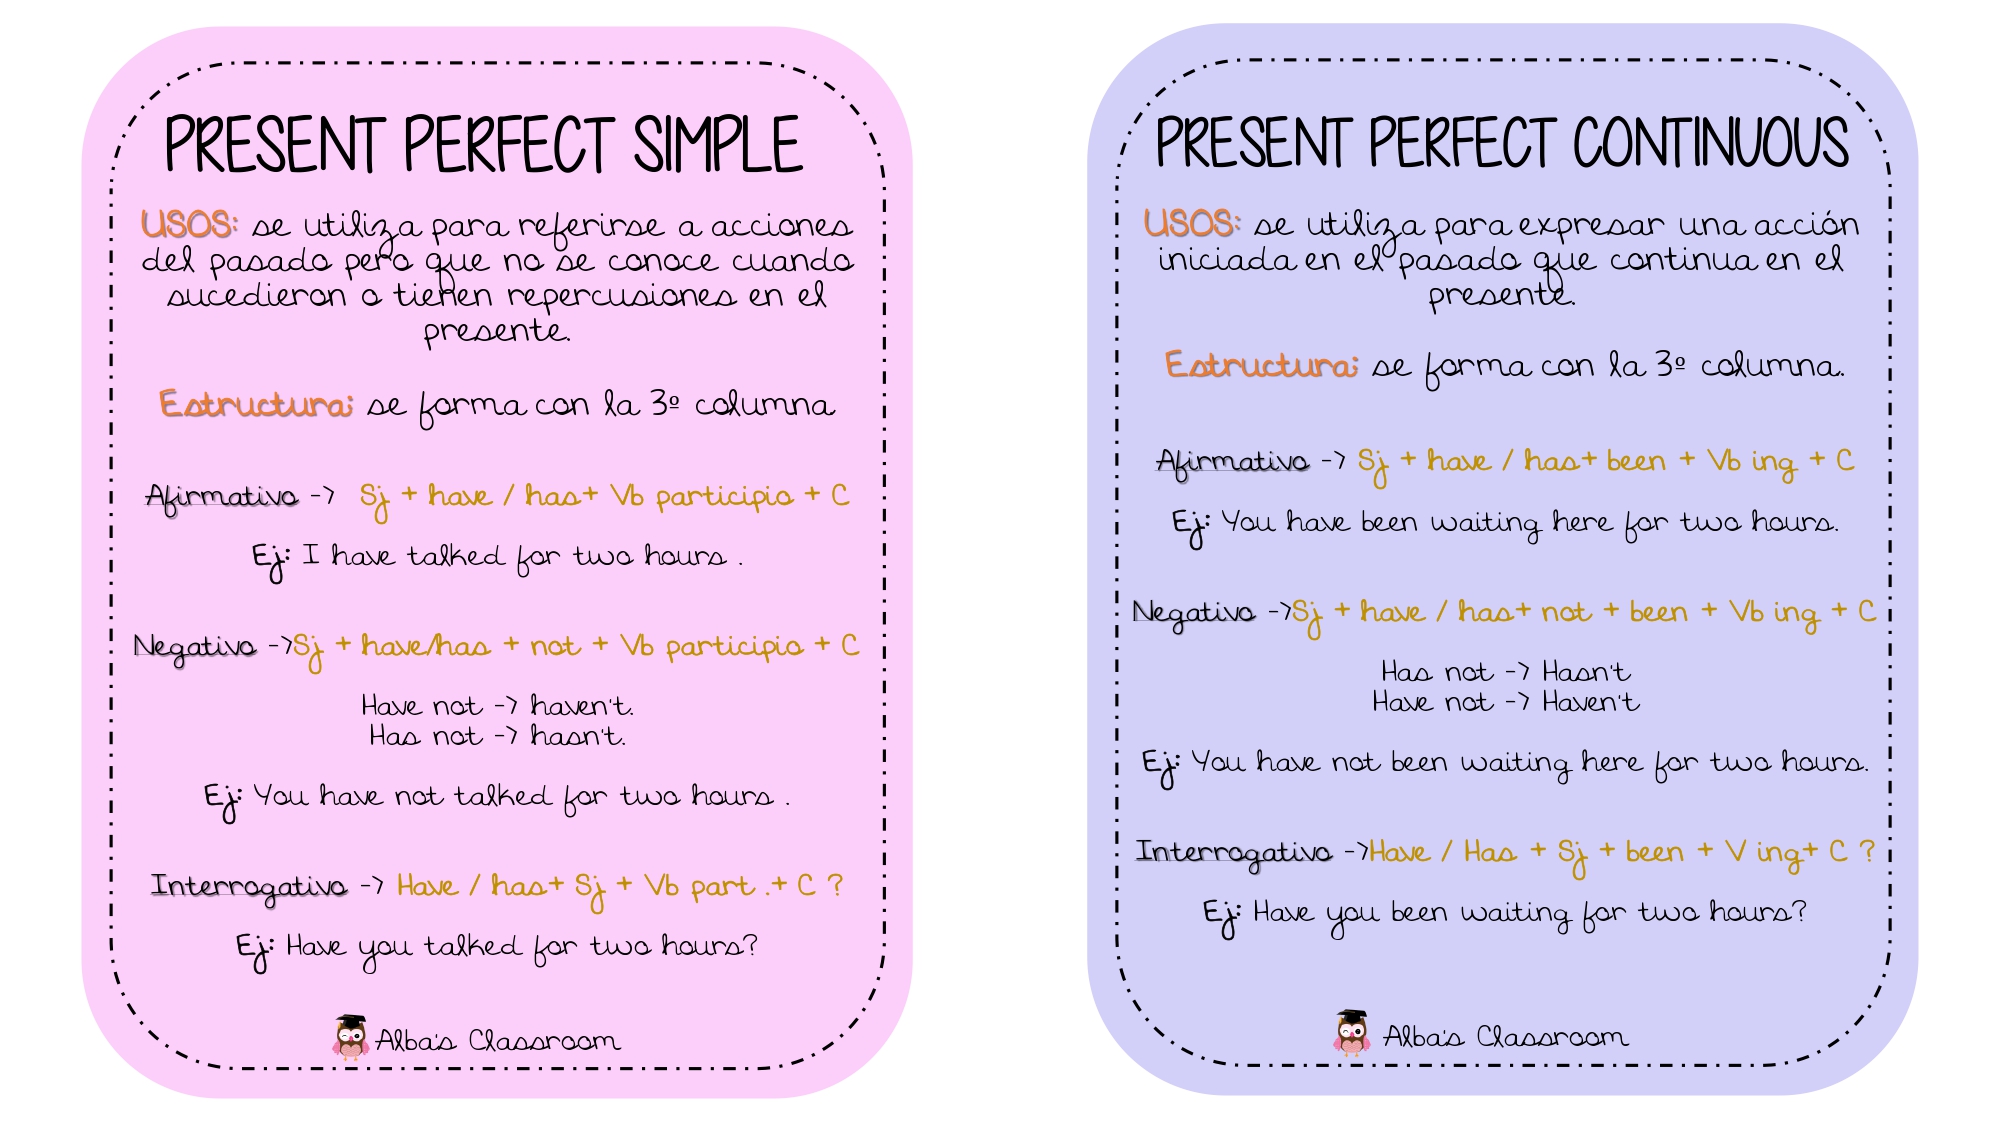 PRESENT PERFECT SIMPLE
USOS: se utiliza para referirse a acciones
del pasado pero que no se conoce cuando
sucedieron o tienen repercusiones en el
presente.
Estructura: se forma con la 3º columna
Afirmativo -> Sj + have / has+ Vb participio + C
Ej: I have talked for two hours .
Negativo ->Sj + have/has + not + Vb participio + C
Have not -> haven't.
Has not -> hasn't.
Ej: You have not talked for two hours .
Interrogativo -> Have / has+ Sj + Vb part .+ C ?
Ej: Have you talked for two hours?
Alba's Classroom
PRESENT PERFECT CONTINUOUS
USOS: se utiliza para expresar una acción
iniciada en el pasado que continua en el
presente.
Estructura: se forma con la 3º columna.
Afirmativo -> Sj + have / has+ been + Vb ing + C
Ej: You have been waiting here for two hours.
Negativo ->Sj + have / has+ not + been + Vb ing + C
Has not -> Hasn't
Have not -> Haven't
Ej: You have not been waiting here for two hours.
Interrogativo ->Have / Has + Sj + been + V ing+ C ?
Ej: Have you been waiting for two hours?
Alba's Classroom